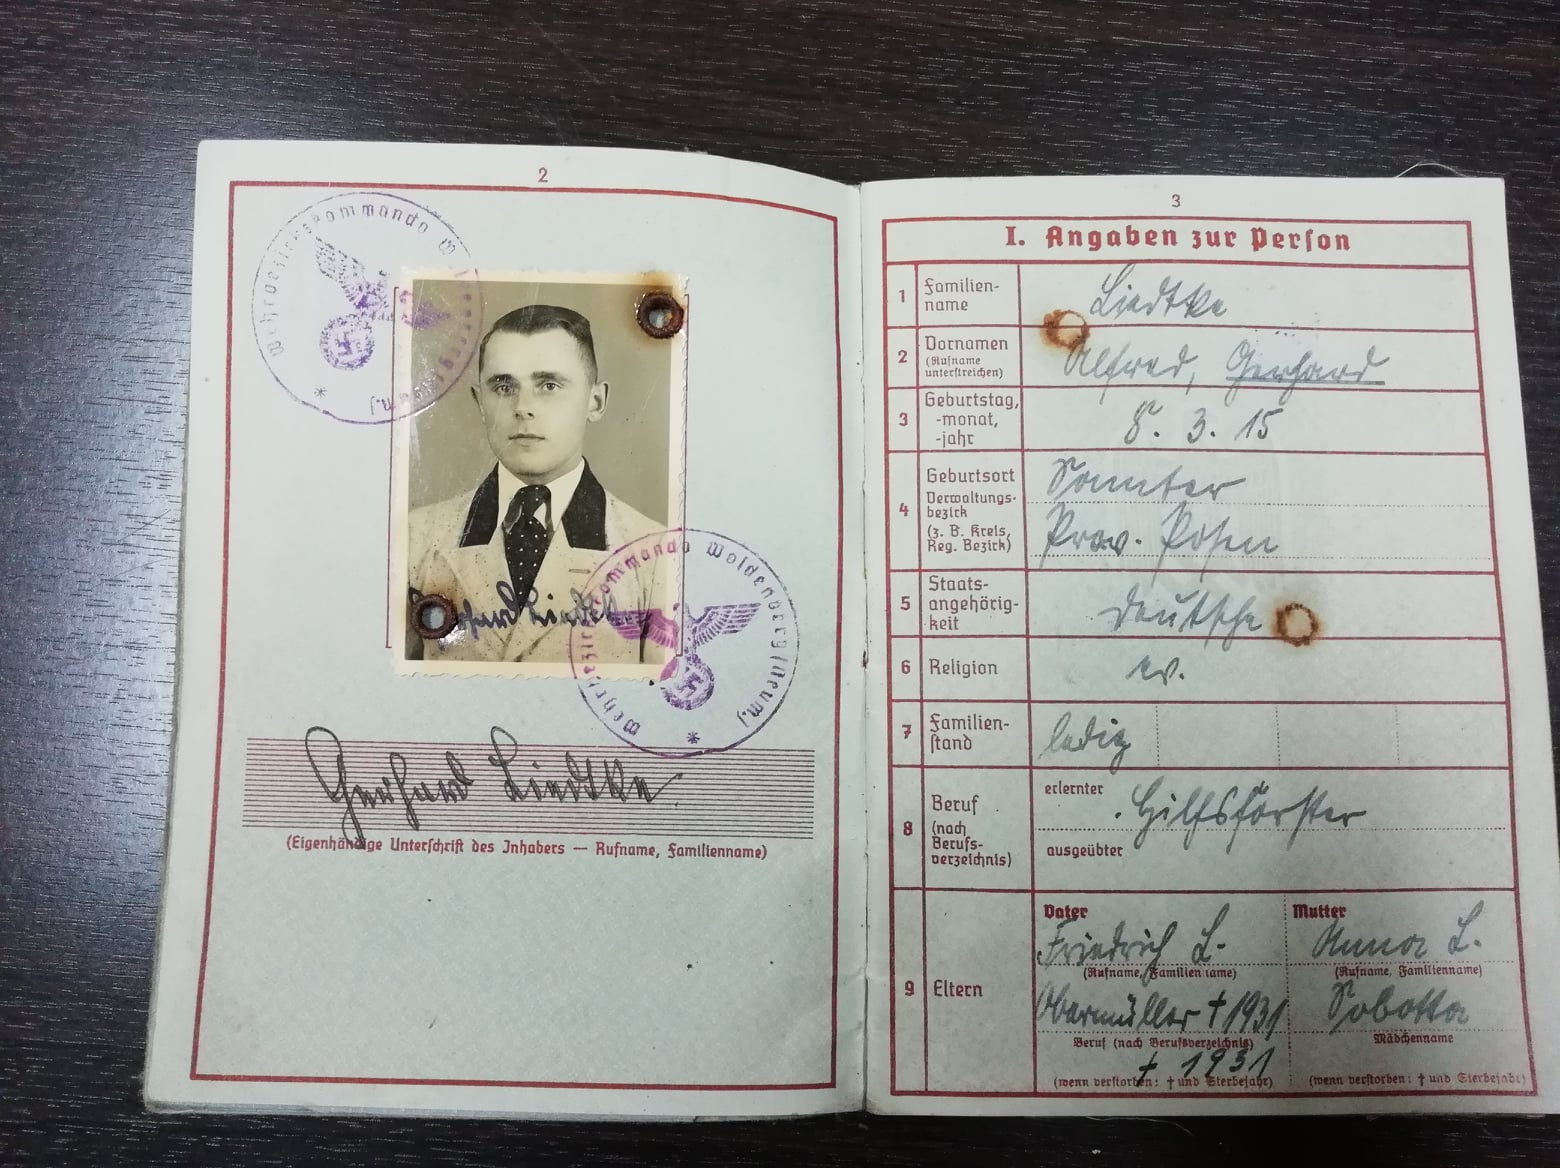 2
Wehrbezirkskommando Woldenberg (Neum.)
Gerhard Liedtke
Wehrbezirkskommando Woldenberg (Neum.)
Gerhard Liedtke
(Eigenhändige Unterschrift des Inhabers — Rufname, Familienname)
3
I. Angaben zur Person
1 Familien-
name
Liedtke
2 Vornamen
(Rufname
unterstreichen)
Alfred, Gerhard
3 Geburtstag,
-monat,
-jahr
8. 3. 15
4 Geburtsort
Verwaltungs-
bezirk
(z. B. Kreis,
Reg. Bezirk)
Samter
Prov. Posen
5 Staats-
angehörig-
keit
deutsche
6 Religion
ev.
7 Familien-
stand
ledig
8 Beruf
(nach
Berufs-
verzeichnis)
erlernter
Hilfsförster
ausgeübter
9 Eltern
Vater
Friedrich L.
(Rufname, Familienname)
Obermüller † 1931
Beruf (nach Berufsverzeichnis)
† 1931
(wenn verstorben: † und Sterbejahr)
Mutter
Anna L.
(Rufname, Familienname)
Sobotta
Mädchenname
(wenn verstorben: † und Sterbejahr)